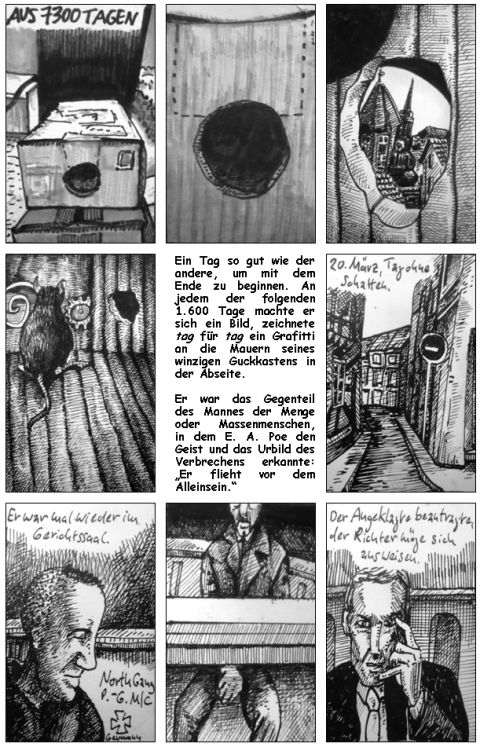 AUS 7300 TAGEN
Ein Tag so gut wie der
andere, um mit dem
Ende zu beginnen. An
jedem der folgenden
1.600 Tage machte er
sich ein Bild, zeichnete
tag für tag ein Grafitti
an die Mauern seines
winzigen Guckkastens in
der Abseite.
Er war das Gegenteil
des Mannes der Menge
oder Massenmenschen,
in dem E. A. Poe den
Geist und das Urbild des
Verbrechens erkannte:
„Er flieht vor dem
Alleinsein.“
20. März, Tag ohne
Schatten.
Er war mal wieder im
Gerichtssaal.
North Gang
P.-G. M/C
Germany
Der Angeklagte beantragte,
der Richter möge sich
ausweisen.